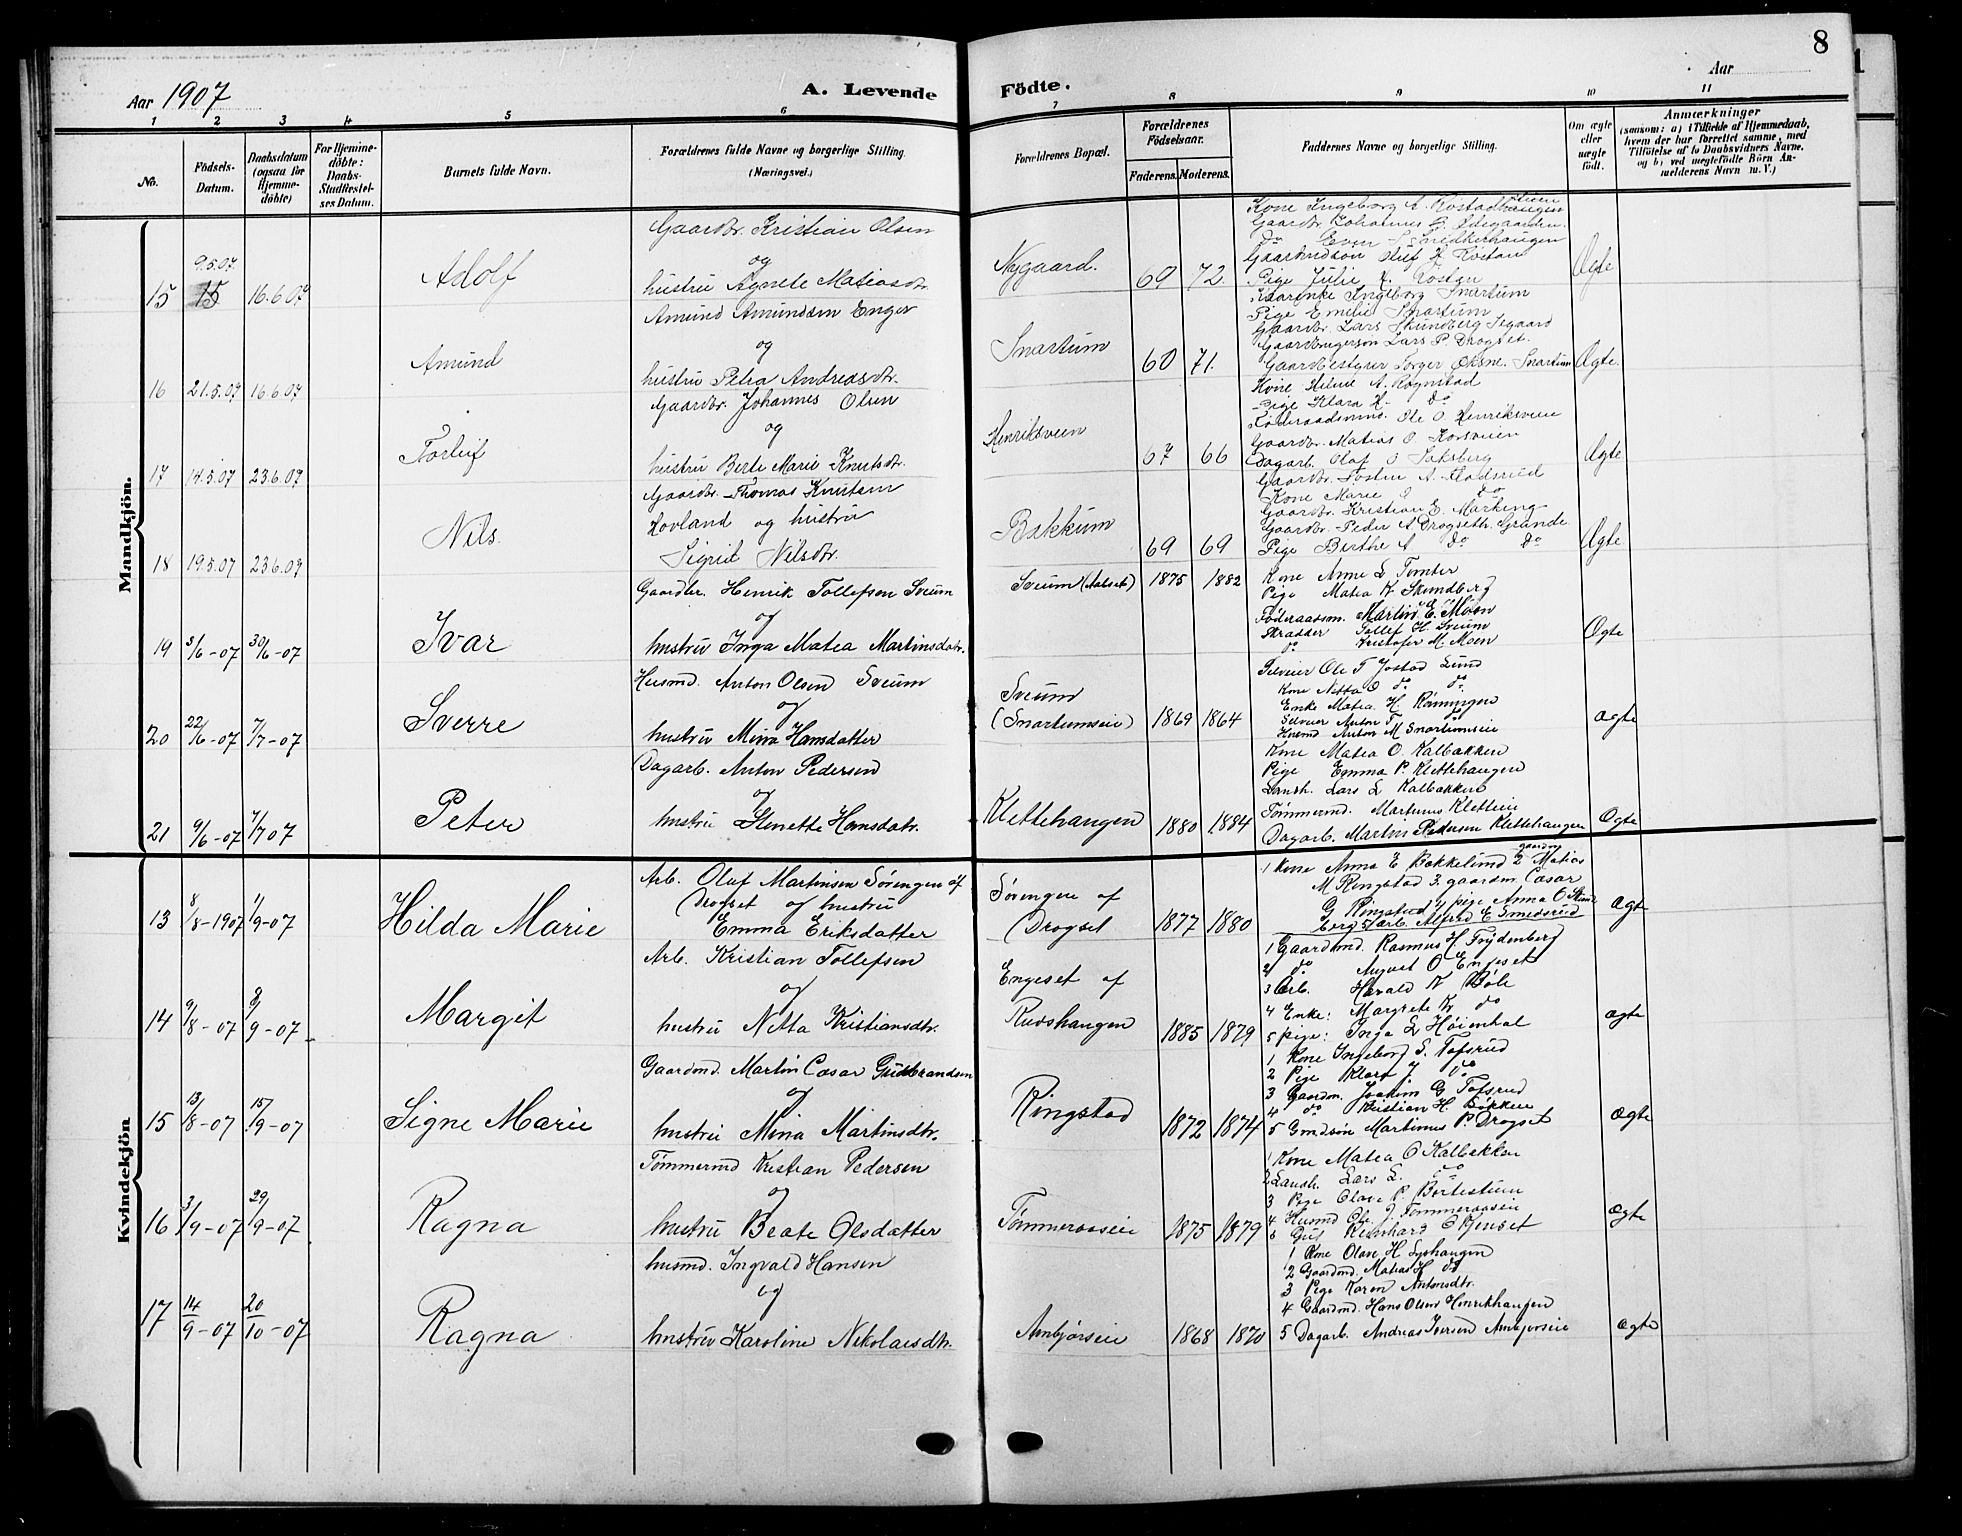 8
Aar 1907
A. Levende
Födte.
Aar
1 2 3 4 5 6 7 8 9 10 11
No.
Födsels-Datum.
Daabsdatum (ogsaa for Hjemmedöbte)
For Hjemmedöbte: Daabs-Stadfestelses Datum.
Barnets fulde Navn.
Forældrenes fulde Navne og borgerlige Stilling. (Næringsvei.)
Forældrenes Bopæl.
Forældrenes Födselsaar.
Faderens. Moderens.
Faddernes Navne og borgerlige Stilling.
Om ægte eller uægte födt.
Anmærkninger
(saasom: a) i Tilfælde af Hjemmedaab, hvem der har forrettet samme, med Tilföielse af to Daabsvidners Navne. og b) ved uægtefödte Börn Anmelderens Navn m. V.)
Mandkjön.
15 9.5.07 16.6.07 Adolf
Gaardbr. Kristian Olsen
og
hustru Agnete Matiasdtr.
Nygaard. 69 72
Gaardbr. Johannes Ødegaarden.
Ægte
16 21.5.07 16.6.07 Amund
Amund Amundsen Enger
og
hustru Petra Andreasdtr.
Snartum 60 71.
Enke Ingeborg Snartum
Pige Emilie Snartum
Gaardbr. Lars Skundberg
Gaardbrugerson Lars P. Drogset.
Gaardbestyrer Snartum
Ægte.
17 14.5.07 23.6.07 Torleif
Gaardbr. Johannes Olsen
og
hustru Berte Marie Knutsdtr.
Henriksveen 67 66
Kone Helene A. Rognstad
Pige Klara H. do
Ole O. Henriksveen
Gaardbr. Matias O.
Dagarb. Olaf O Saksberg
Ægte
18 19.5.07 23.6.07 Nils.
Gaardbr. Thomas Knutsen
Hovland og hustru
Sigrid Nilsdtr.
Bakkum 69 69
Kone Marie do
Gaardbr. Kristian E.
Gaardbr. Peder A Drogseth Grande
Pige Berthe A do do
Ægte
19 3/6-07 30/6-07 Ivar
Gaardbr. Henrik Tollefsen Sveum
og
hustru Inga Matea Martinsdatr.
Sveum 1875 1882
Kone Anne L Tomter
Pige Matea K Skundberg
Føderaadsm. Martin E. Moen
Skradder Tollef H. Sveum
do Kristofer M. Moen
Ægte
20 22/6-07 7/7-07 Sverre
Husmd. Anton Olsen Sveum
og
hustru Mina Hansdatter
Sveum
(Snartumseie) 1869 1864
Selveier Ole T Jostad Lund
Kone Netta O do do
Enke Matea H. Rønningen
Selveier Anton T do
Husmd Anton M Snartumseie
ægte
21 9/6-07 7/7 07 Peter
Dagarb. Anton Pedersen
og
hustru Henette Hansdatr.
Klettehaugen 1880 1884
Kone Matea O. Kalbakken
Pige Emma P. Klettehaugen
Landh. Lars L Kalbakken
Tømmermd. Martinus Kletteie
Dagarb. Martin Pedersen Klettehaugen
Ægte
Kvindekjön
13 8/8-1907 1/9-07 Hilda Marie
Arb. Oluf Martinsen Sørengen af
Drogset og hustru
Emma Eriksdatter
Sørengen af
Drogset 1877 1880
1 Kone Anna E Bakkelund 2 gaardm Matias
M Ringstad 3. gaardm. Cæsar
G Ringstad 4 pige Anna O
5 arb. Alfred E Smedsrud
ægte
14 9/8-07 8/9-07 Margit
Arb. Kristian Tollefsen
og
hustru Netta Kristiansdtr.
Engeset af
Rudshaugen 1885 1879
1 Gaardmd. Rasmus H Frydenberg
2 do August O Engeset
3 Arb. Harald K Bøle
4 Enke: Margrete K do
5 pige: Inga L Høiendal
ægte
15 13/8-07 15/9-07 Signe Marie
Gaardmd. Martin Cæsar Gudbrandsen
og
hustru Mina Martinsdtr.
Ringstad 1872 1874
1 Kone Ingeborg S. Tofsrud
2 Pige Klara J do
3 Gaardm. Joachim G Tofsrud
4 do Kristian H. Bakken
5 Gmdsøn Martinus P. Drogset
ægte
16 3/9-07 29/9-07 Ragna
Tømmermd Kristian Pedersen
og
hustru Beate Olsdatter
Tømmeraaseie 1875 1879
1 Kone Matea O Kalbakken
2 Landh. Lars L. do
3 Pige Olave P. Børtestuen
4 Husmd Ole J. Tømmeraaseie
Reinhard O
ægte
17 14/9-07 20/10-07 Ragna
husmd. Ingvald Hansen
og
hustru Karoline Nikolaisdtr.
Ambjørseie 1868 1870
1 Kone Olave H Lyshaugen
2 Gaardmd. Matias H do
3 Pige Karen Antonsdtr.
4 Gaardmd. Hans Olsen Henrikhaugen
5 Dagarb. Andreas Iversen Ambjørseie
ægte